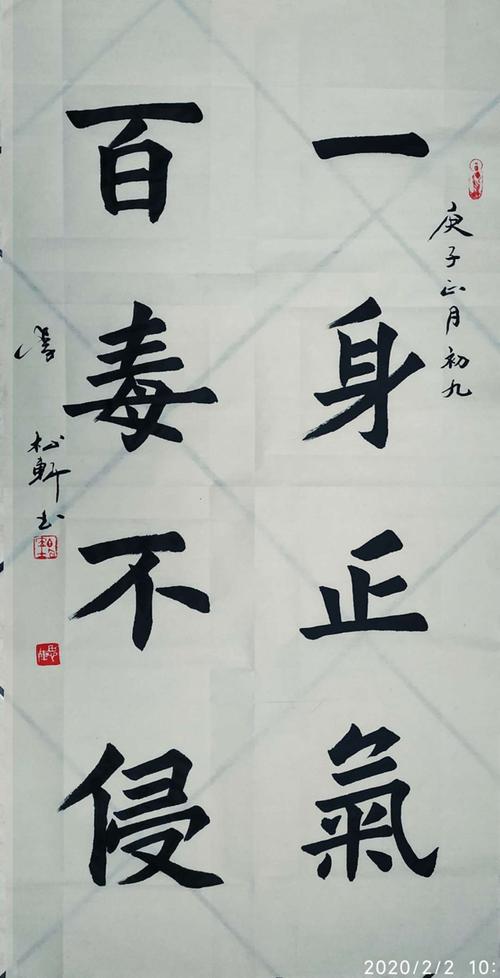 庚子正月初九
一身正氣
百毒不侵
松軒书
2020/2/2 10: